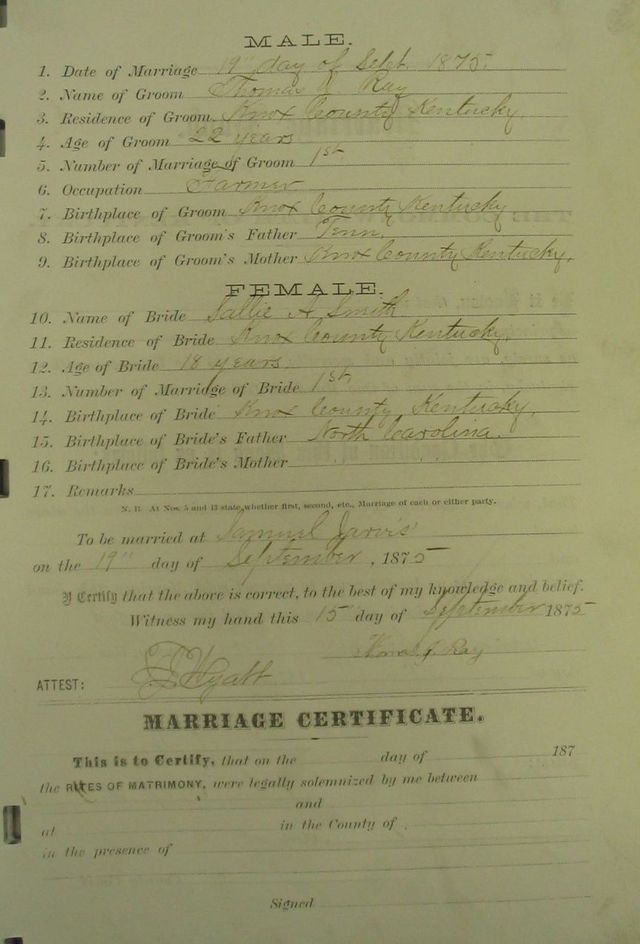 MALE.
1. Date of Marriage 19" day of Sept. 1875.
2. Name of Groom Thomas J. Ray
3. Residence of Groom Knox County Kentucky.
4. Age of Groom 22 years
5. Number of Marriage of Groom 1st
6. Occupation Farmer
7. Birthplace of Groom Knox County Kentucky
8. Birthplace of Groom's Father Tenn.
9. Birthplace of Groom's Mother Knox County Kentucky.
FEMALE.
10. Name of Bride Sallie A Smith
11. Residence of Bride Knox County Kentucky.
12. Age of Bride 18 years.
13. Number of Marriage of Bride 1st
14. Birthplace of Bride Knox County Kentucky.
15. Birthplace of Bride's Father North Carolina.
16. Birthplace of Bride's Mother
17. Remarks
N. B. At Nos. 5 and 13 state whether first, second, etc., Marriage of each or either party.
To be married at Samuel Jarvis'
on the 19" day of September, 1875
I Certify that the above is correct, to the best of my knowledge and belief.
Witness my hand this 15" day of September 1875
Ray
ATTEST: Wyatt
MARRIAGE CERTIFICATE.
This is to Certify, that on the day of 187
the RITES OF MATRIMONY, were legally solemnized by me between
and
at in the County of
in the presence of
Signed